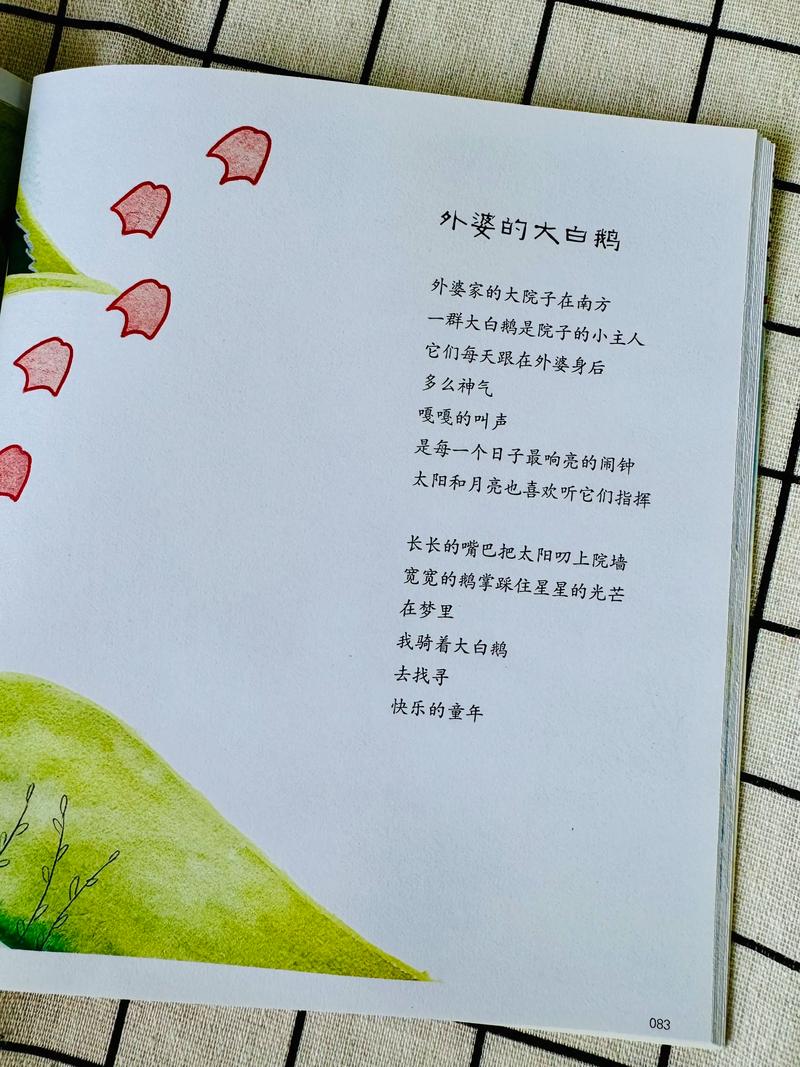 外婆的大白鹅
外婆家的大院子在南方
一群大白鹅是院子的小主人
它们每天跟在外婆身后
多么神气
嘎嘎的叫声
是每一个日子最响亮的闹钟
太阳和月亮也喜欢听它们指挥
长长的嘴巴把太阳叨上院墙
宽宽的鹅掌踩住星星的光芒
在梦里
我骑着大白鹅
去找寻
快乐的童年
083